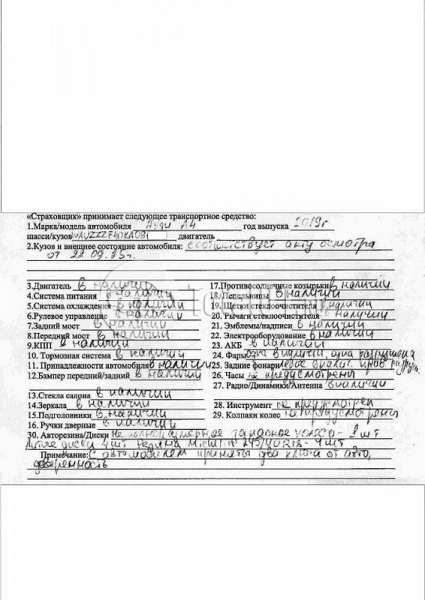 «Страховщик» принимает следующее транспортное средство:
1.Марка/модель автомобиля Ауди А4 год выпуска 2019г
шасси/кузов двигатель
2.Кузов и внешнее состояние автомобиля: соответствует акту осмотра
от 22.09.
3.Двигатель в наличии 17.Противосолнечные козырьки в наличии
4.Система питания в наличии 18.Пепельницы в наличии
5.Система охлаждения в наличии 19.Щетки стеклоочистителя в наличии
6.Рулевое управление в наличии 20. Рычаги стеклоочистителя в наличии
7.Задний мост в наличии 21. Эмблемы/надписи в наличии
8.Передний мост в наличии 22. Электрооборудование в наличии
9.КПП в наличии 23. АКБ в наличии
10. Тормозная система в наличии 24. Фары одна в наличии, одна разрушена
11.Принадлежности автомобиля в наличии 25. Задние фонари левое
12.Бампер передний/задний в наличии 26. Часы не предусмотрены
27. Радио/Динамики/Антенна в наличии
13.Стекла салона в наличии
14.Зеркала в наличии 28. Инструмент не предусмотрен
15.Подголовники в наличии 29. Колпаки колес
16. Ручки дверные в наличии
30. Авторезина/Диски
диски 4шт резина 4шт
Примечание: С автомобилем приняты два ключа от авто,
доверенность